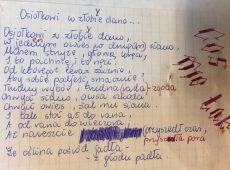 Osiołkowi w żłobie dano...
Osiołkom w żłobie dano,
W jednym owies w drugim siano,
Uchem strzyże, głową kręci,
I to pachnie, i to nęci.
Od któregoż teraz zacznie,
Aby sobie podjeść smacznie,
Trudny wybór, trudna zgoda
Chwyci siano, owsa szkoda
Chwyci owies, żal mu siana
I tak stoi aż do rana,
A od rana do wieczora,
Aż nareszcie przyszedł czas,
przyszła pora
Że oślina pośród jadła
z głodu padła